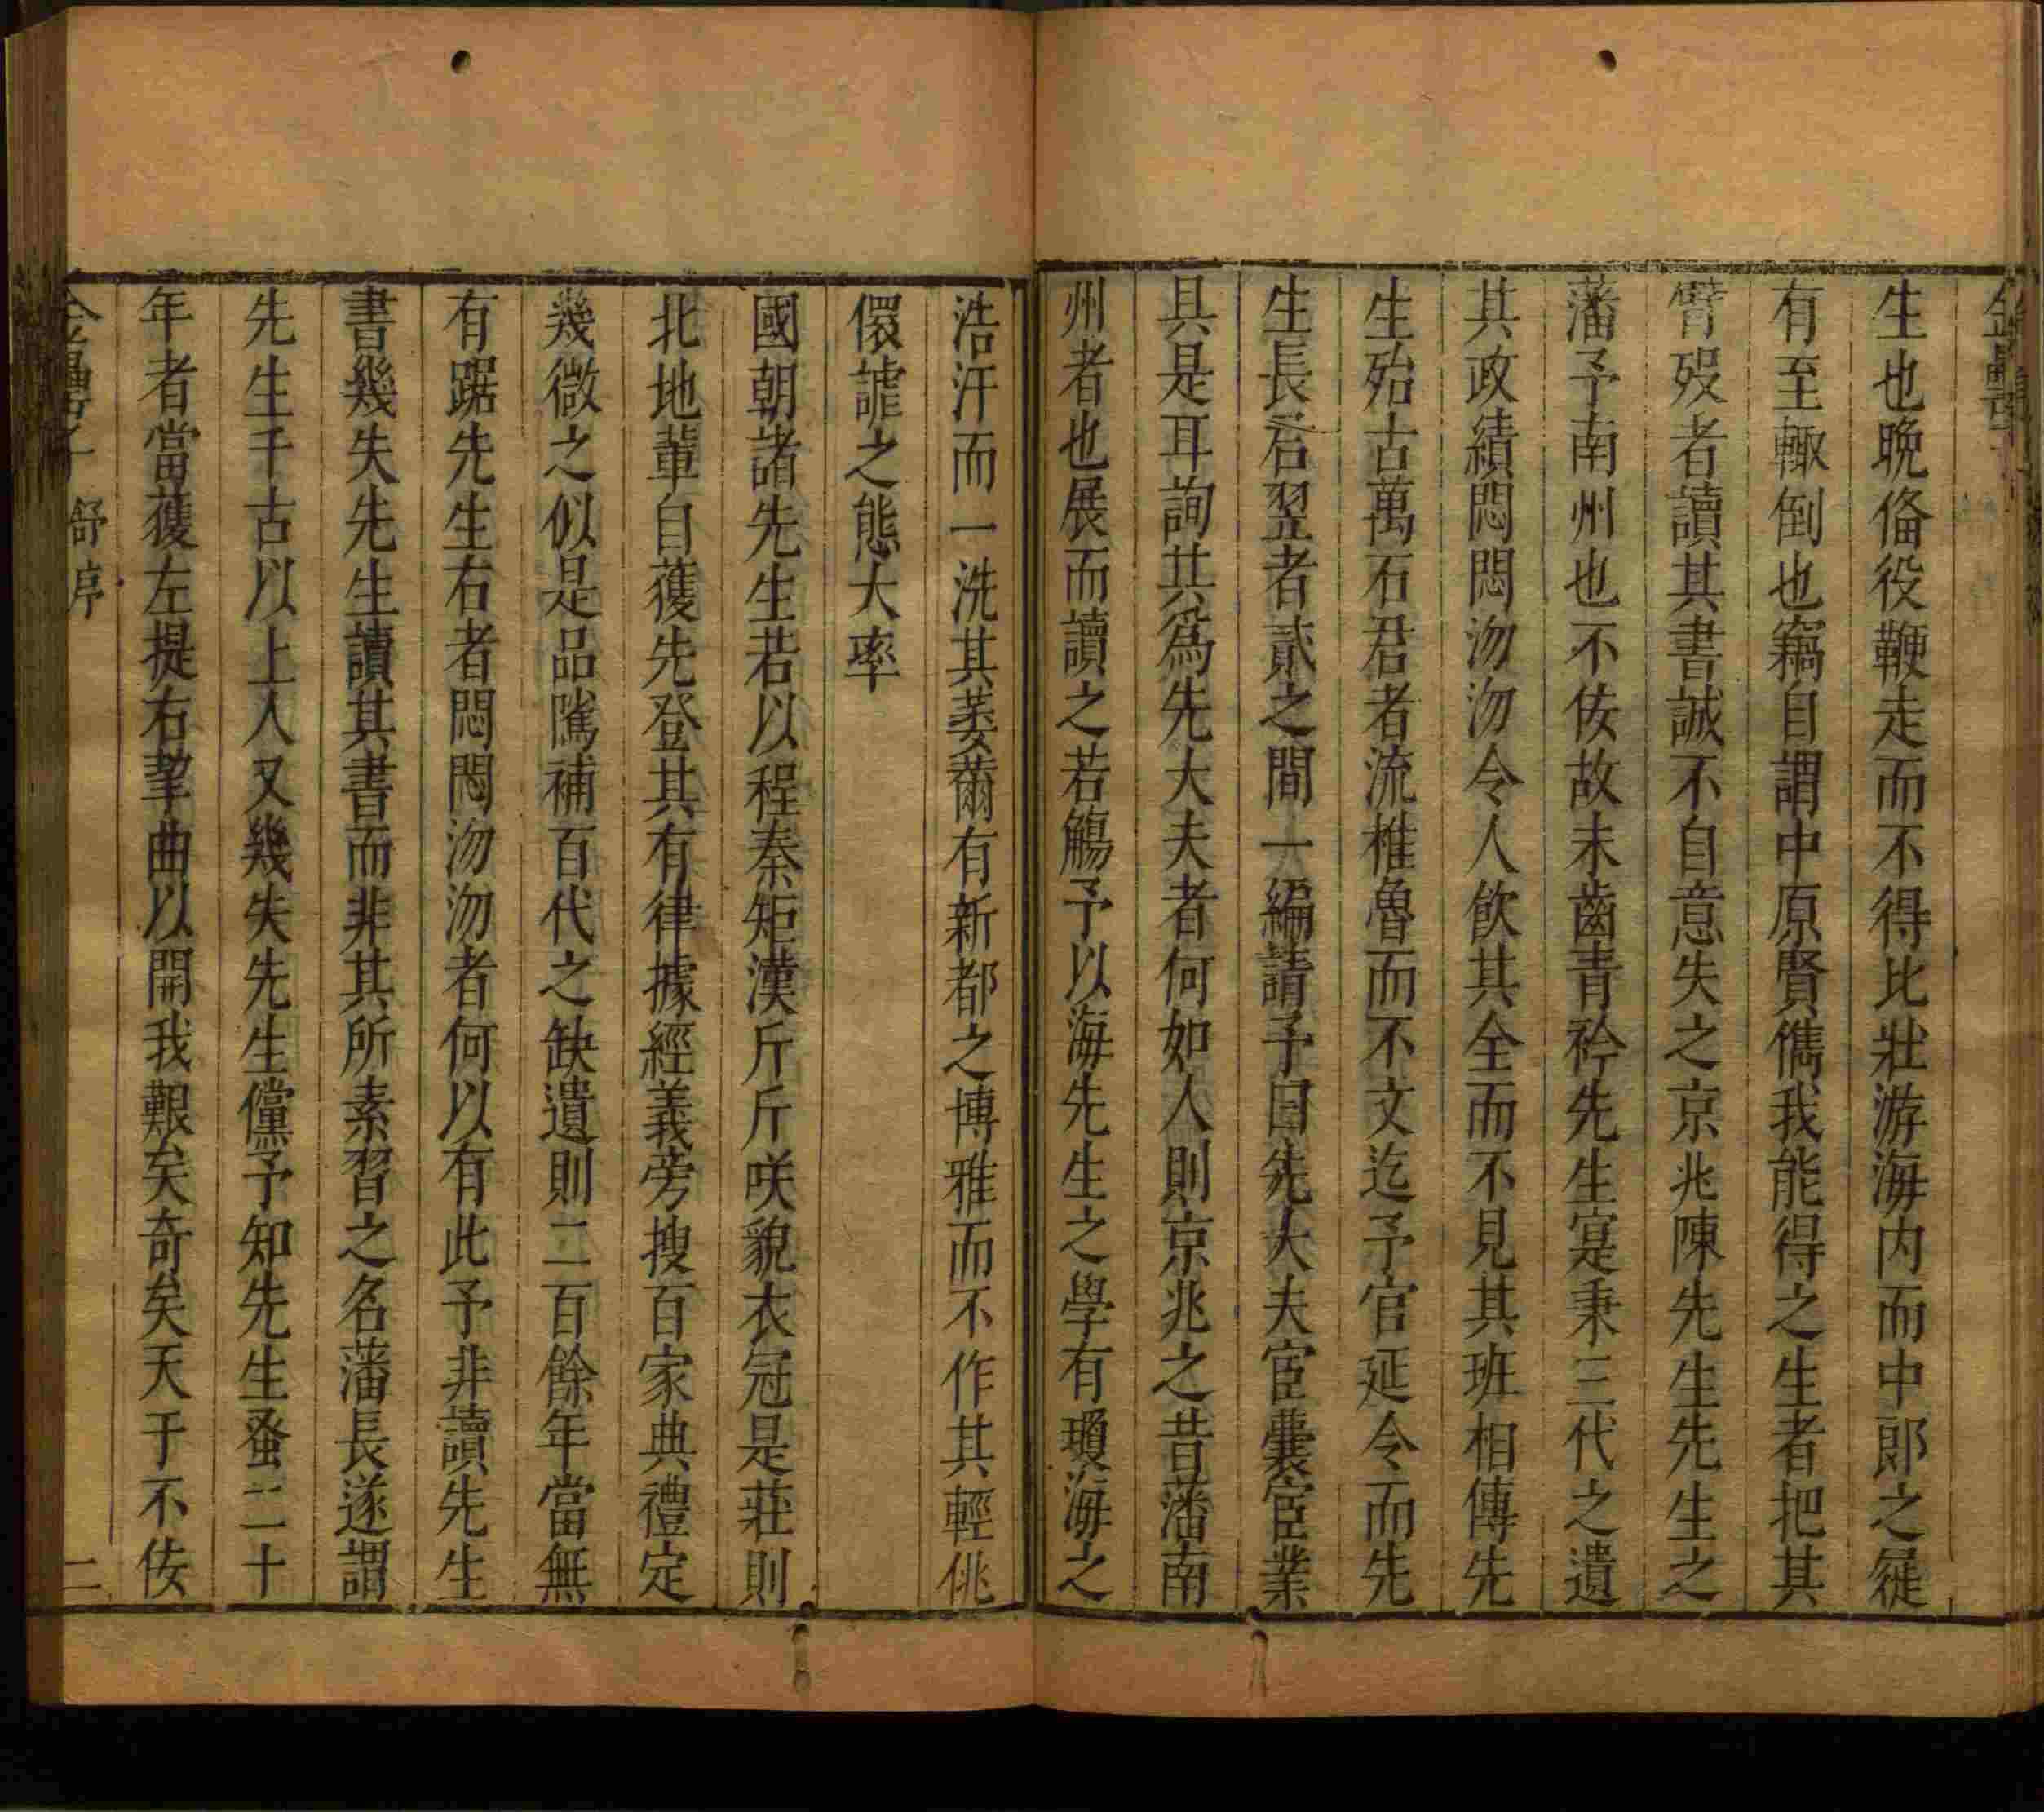 生也晚俻役鞭走而不得比壯游海内而中郎之簁
有至輙倒也竊自謂中原賢儁我能得之生者把其
臂歿者讀其書誠不自意失之京兆陳先生先生之
藩予南州也不佞故未齒青衿先生寔秉三代之遺
其政績悶悶沕沕令人飲其全而不見其班相傳先
生殆古萬石君者流椎魯而不文迄予官延令而先
生長君翌者貳之間一編請予曰先大夫宦囊宦業
具是耳詢其爲先大夫者何如人則京兆之昔藩南
州者也展而讀之若觴予以海先生之學有瓊海之
浩汗而一洗其萎薾有新都之博雅而不作其輕佻
儇謔之態大率
國朝諸先生若以程秦矩漢斤斤咲貌衣冠是莊則
北地輩自獲先登其有律據經義旁搜百家典禮定
幾微之似是品隲補百代之缺遺則二百餘年當無
有踞先生右者悶悶沕沕者何以有此予非讀先生
書幾失先生讀其書而非其所素習之名藩長遂謂
先生千古以上人又幾失先生儻予知先生蚤二十
年者當獲左提右挈曲以開我艱矣奇矣天于不佞
金罍子 舒序 二